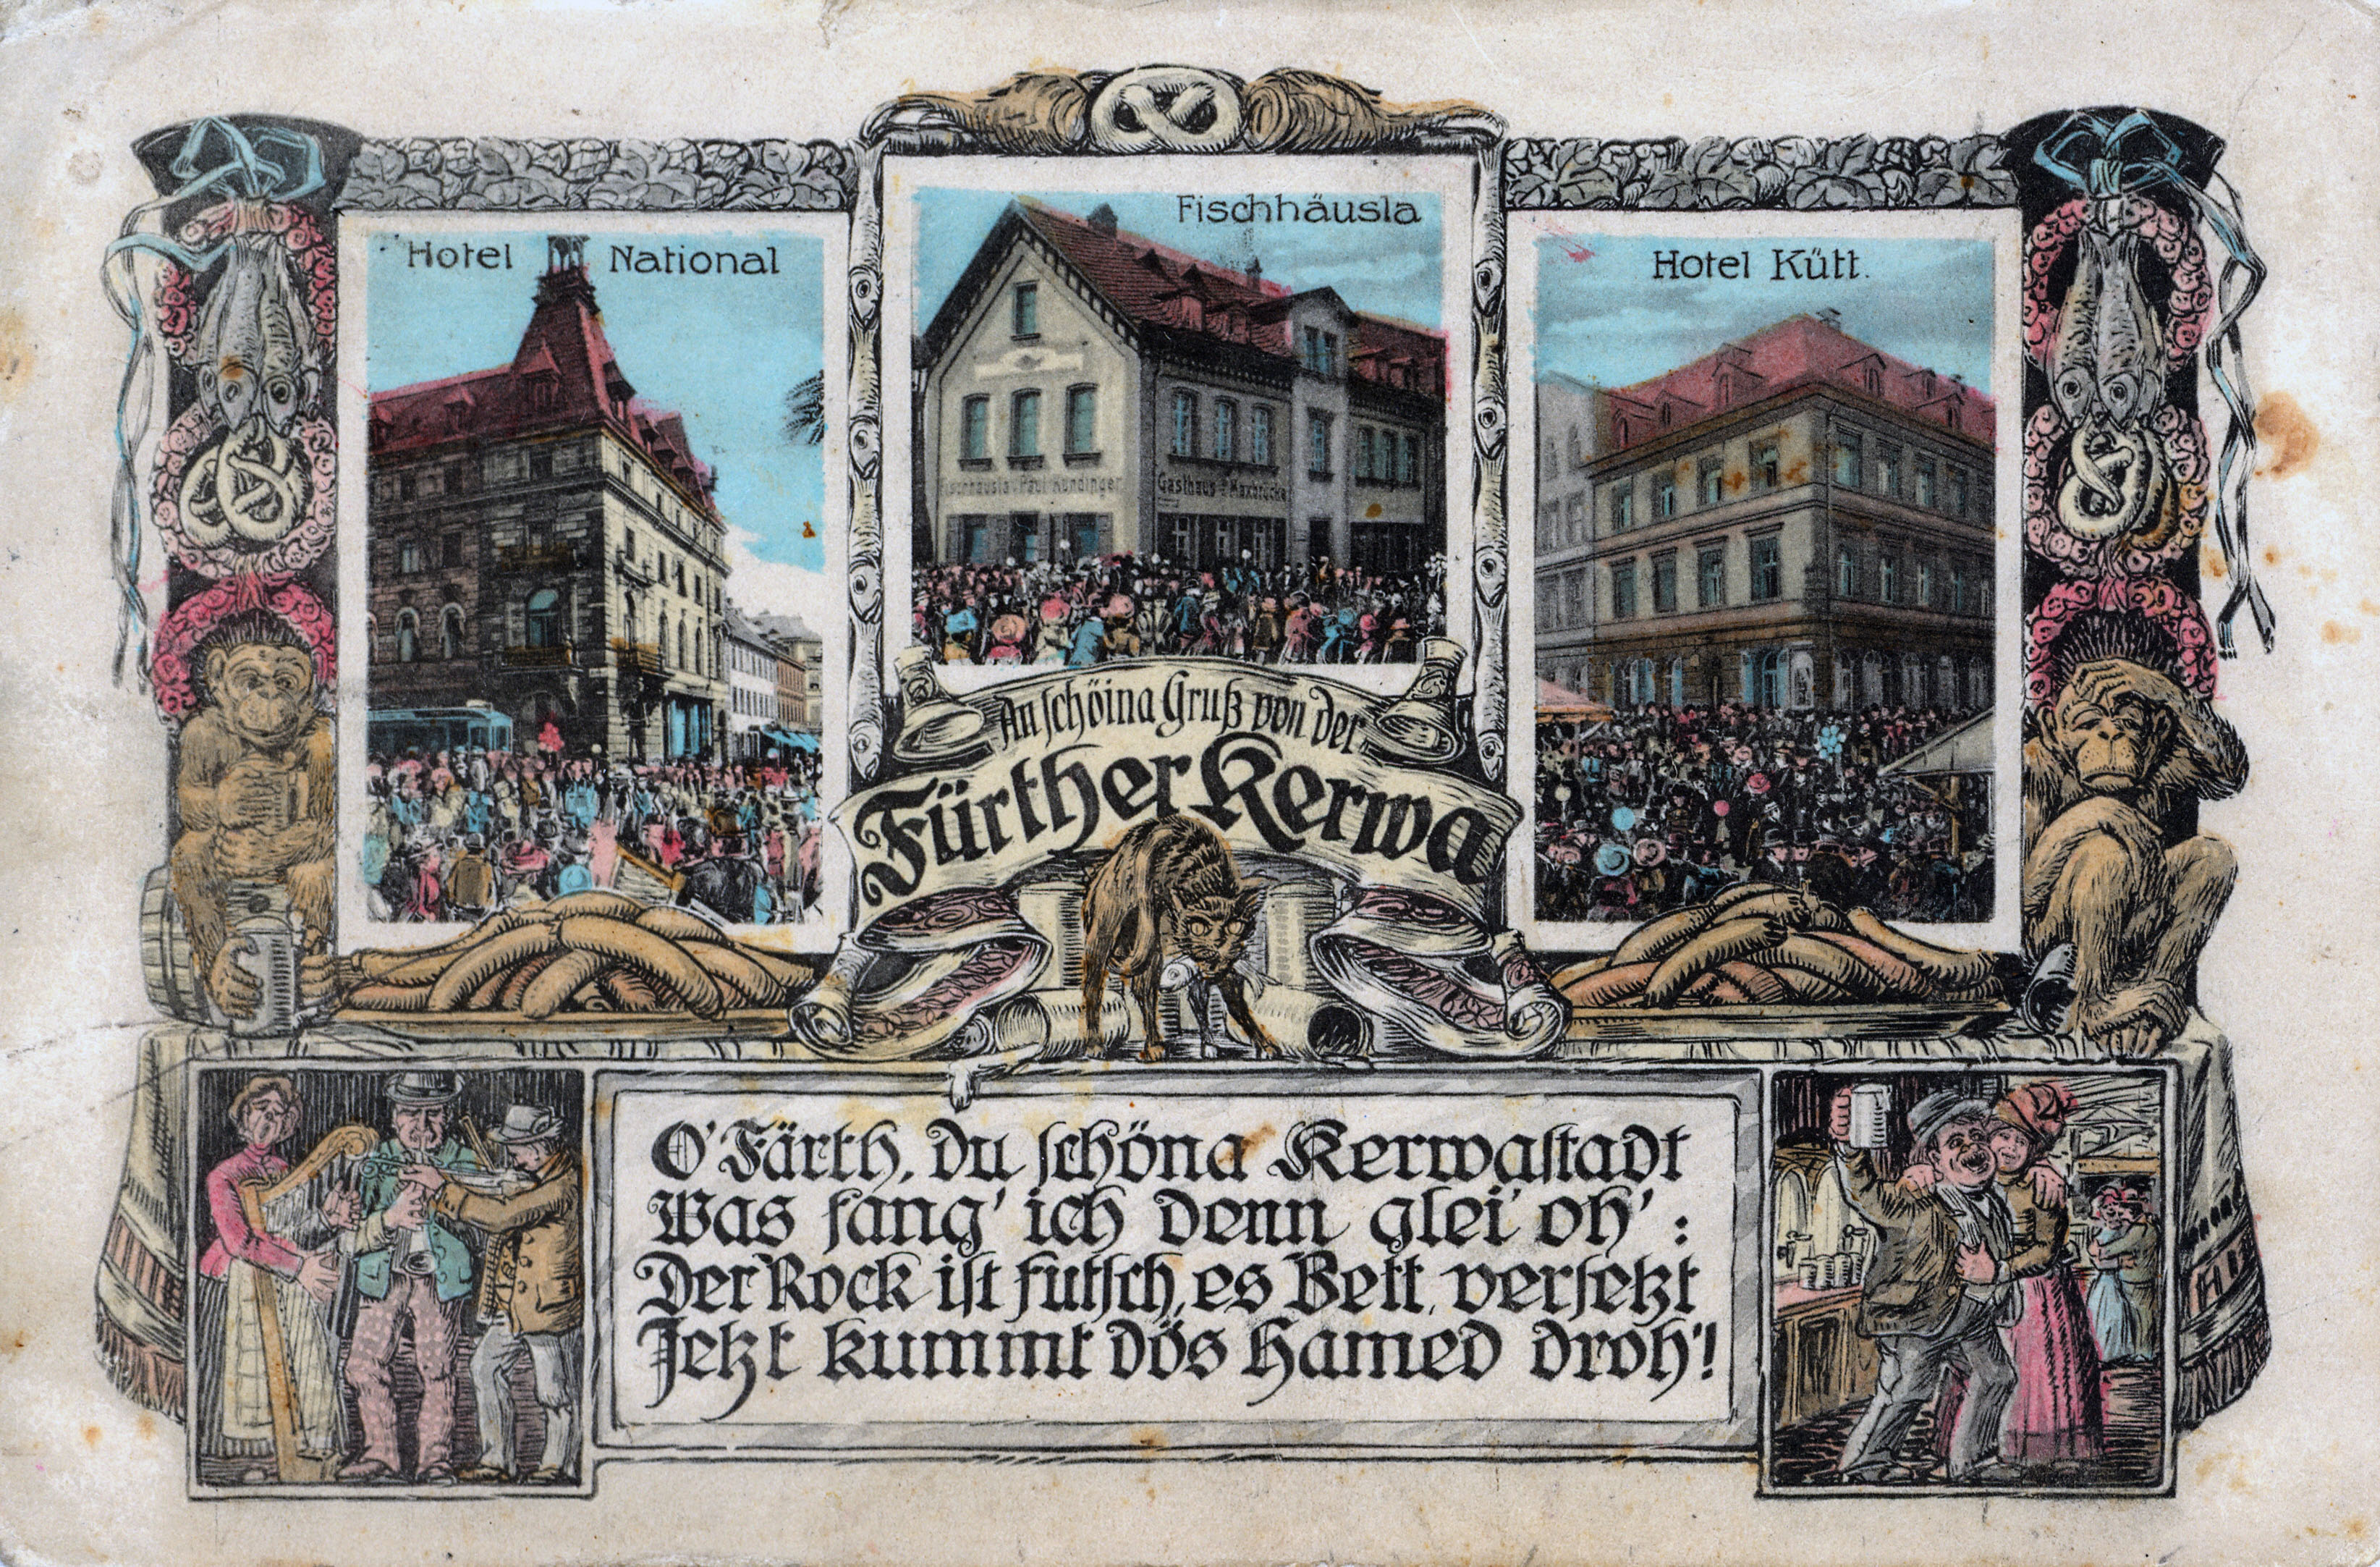 Hotel National
Fischhäusla
Hotel Kütt.
Fischhäusla Paul Kündinger
Gasthaus z. Maxbrücke
An schöina Gruß von der
Further Kerwa
O' Färth, du schöna Kerwastadt
Was fang' ich denn glei' oh' :
Der Rock ist futsch, es Bett versetzt
Jetzt kummt dös Hamed droh'!